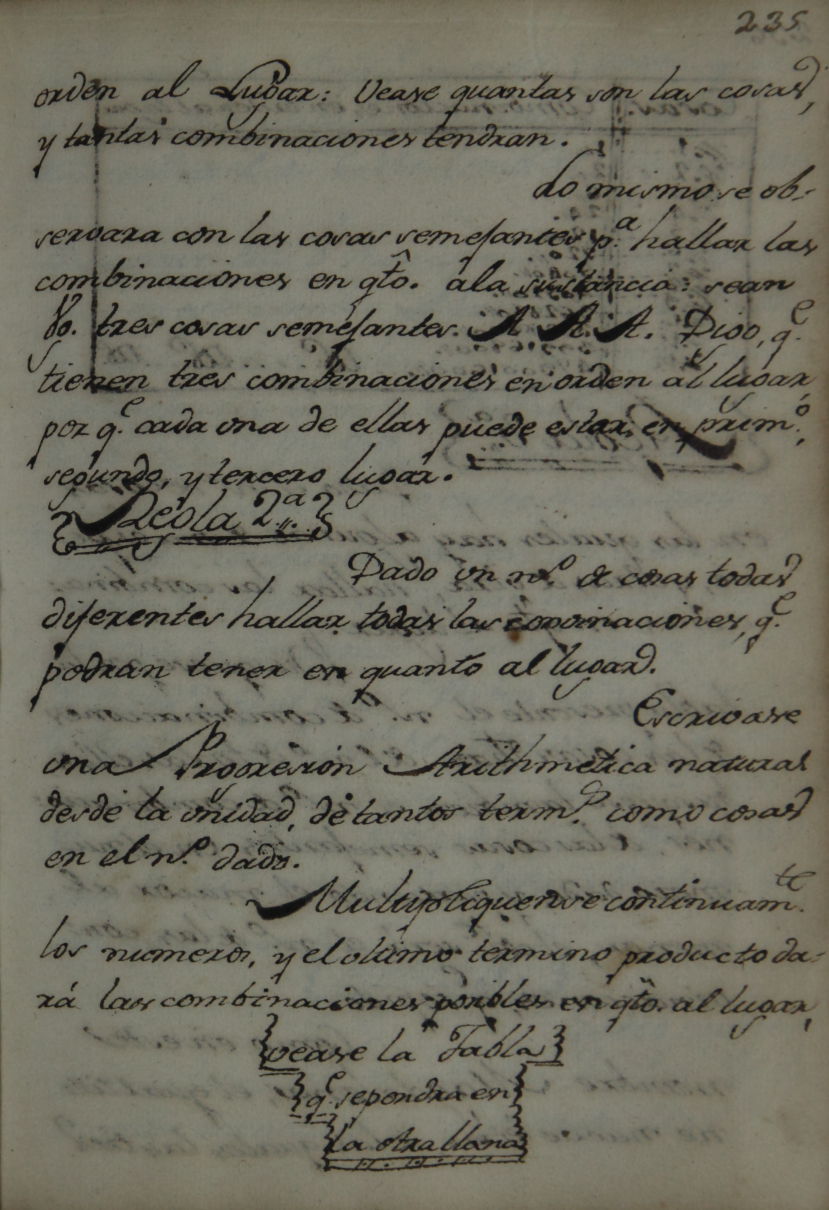 235
orden al Lugar: Vease quantas son las cosas,
y tantas combinaciones tendran.
Lo mismo se ob-
servara con las cosas semejantes pª. hallar las
combinaciones en qtô. âla sustancia: sean
Vº. tres cosas semejantes. A A A. Digo, qᵉ.
tienen tres combinaciones en orden al lugar,
por qᵉ. cada una de ellas puede estar, en primº.,
segundo, y tercero lugar.
Regla 2ª.
Dado un nº. de cosas todas
diferentes hallar todas las convinaciones, qᵉ.
podran tener en quanto al lugar.
Escrivase
una Progresión Arithmetica natural
desde la vnidad, de tantos termˢ. como cosas
en el nº. dado.
Multipliquense continuamᵗᵉ.
los numeros, y el vltimo termino producto da-
rá las combinaciones posibles en qtô. al lugar,
vease la Tabla
qᵉ. se pondra en
la otra llana